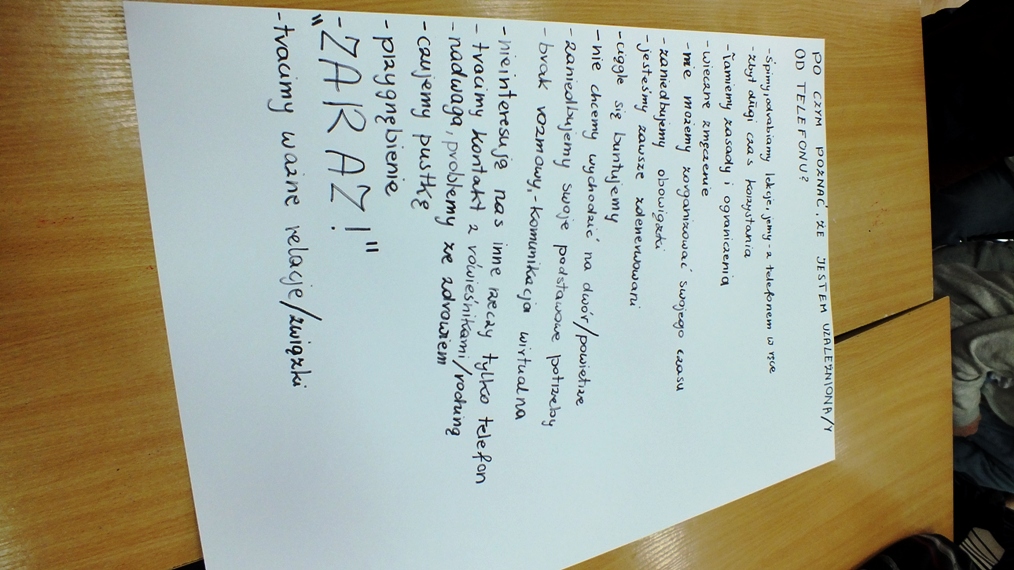 PO CZYM POZNAĆ, ŻE JESTEM UZALEŻNIONA/Y
OD TELEFONU?
- śpimy, odrabiamy lekcje, jemy - z telefonem w ręce
- zbyt długi czas korzystania
- łamiemy zasady i ograniczenia
- wieczne zmęczenie
- nie możemy zorganizować swojego czasu
- zaniedbujemy obowiązki
- jesteśmy zawsze zdenerwowani
- ciągle się buntujemy
- nie chcemy wychodzić na dwór/powietrze
- zaniedbujemy swoje podstawowe potrzeby
- brak rozmowy, - komunikacja wirtualna
- nie interesują nas inne rzeczy tylko telefon
- tracimy kontakt z rówieśnikami/rodziną
- nadwaga, problemy ze zdrowiem
- czujemy pustkę
- przygnębienie
- "ZARAZ!"
- tracimy ważne relacje/związki